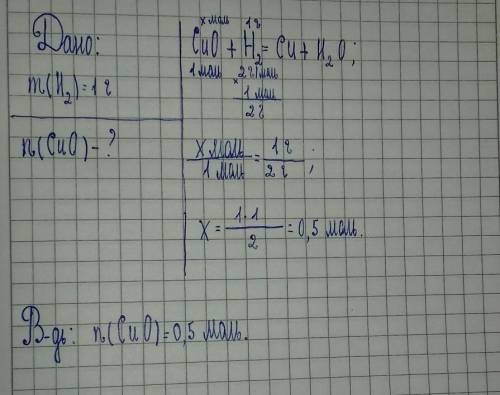 Дано:
m(H₂)=1г
n(CuO)-?
x моль 1г
CuO + H₂ = Cu + H₂O;
1 моль 2г/моль
× 1 моль
2г
x моль / 1 моль = 1г / 2г ;
x = 1·1 / 2 = 0,5 моль.
В-дь: n(CuO)=0,5 моль.